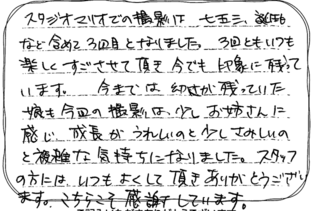 スタジオマリオでの撮影は 七五三、誕生日
など含めて3回目となりました。3回ともいつも
楽しくすごさせて頂き今でも印象に残って
います。 今までは 幼さが残っていた
娘も今回の撮影は、少しお姉さんに
感じ 成長がうれしいのと少しさみしいの
と複雑な気持ちになりました。スタッフ
の方には、いつもよくして頂きありがとうござい
ます。こちらこそ感謝しています。